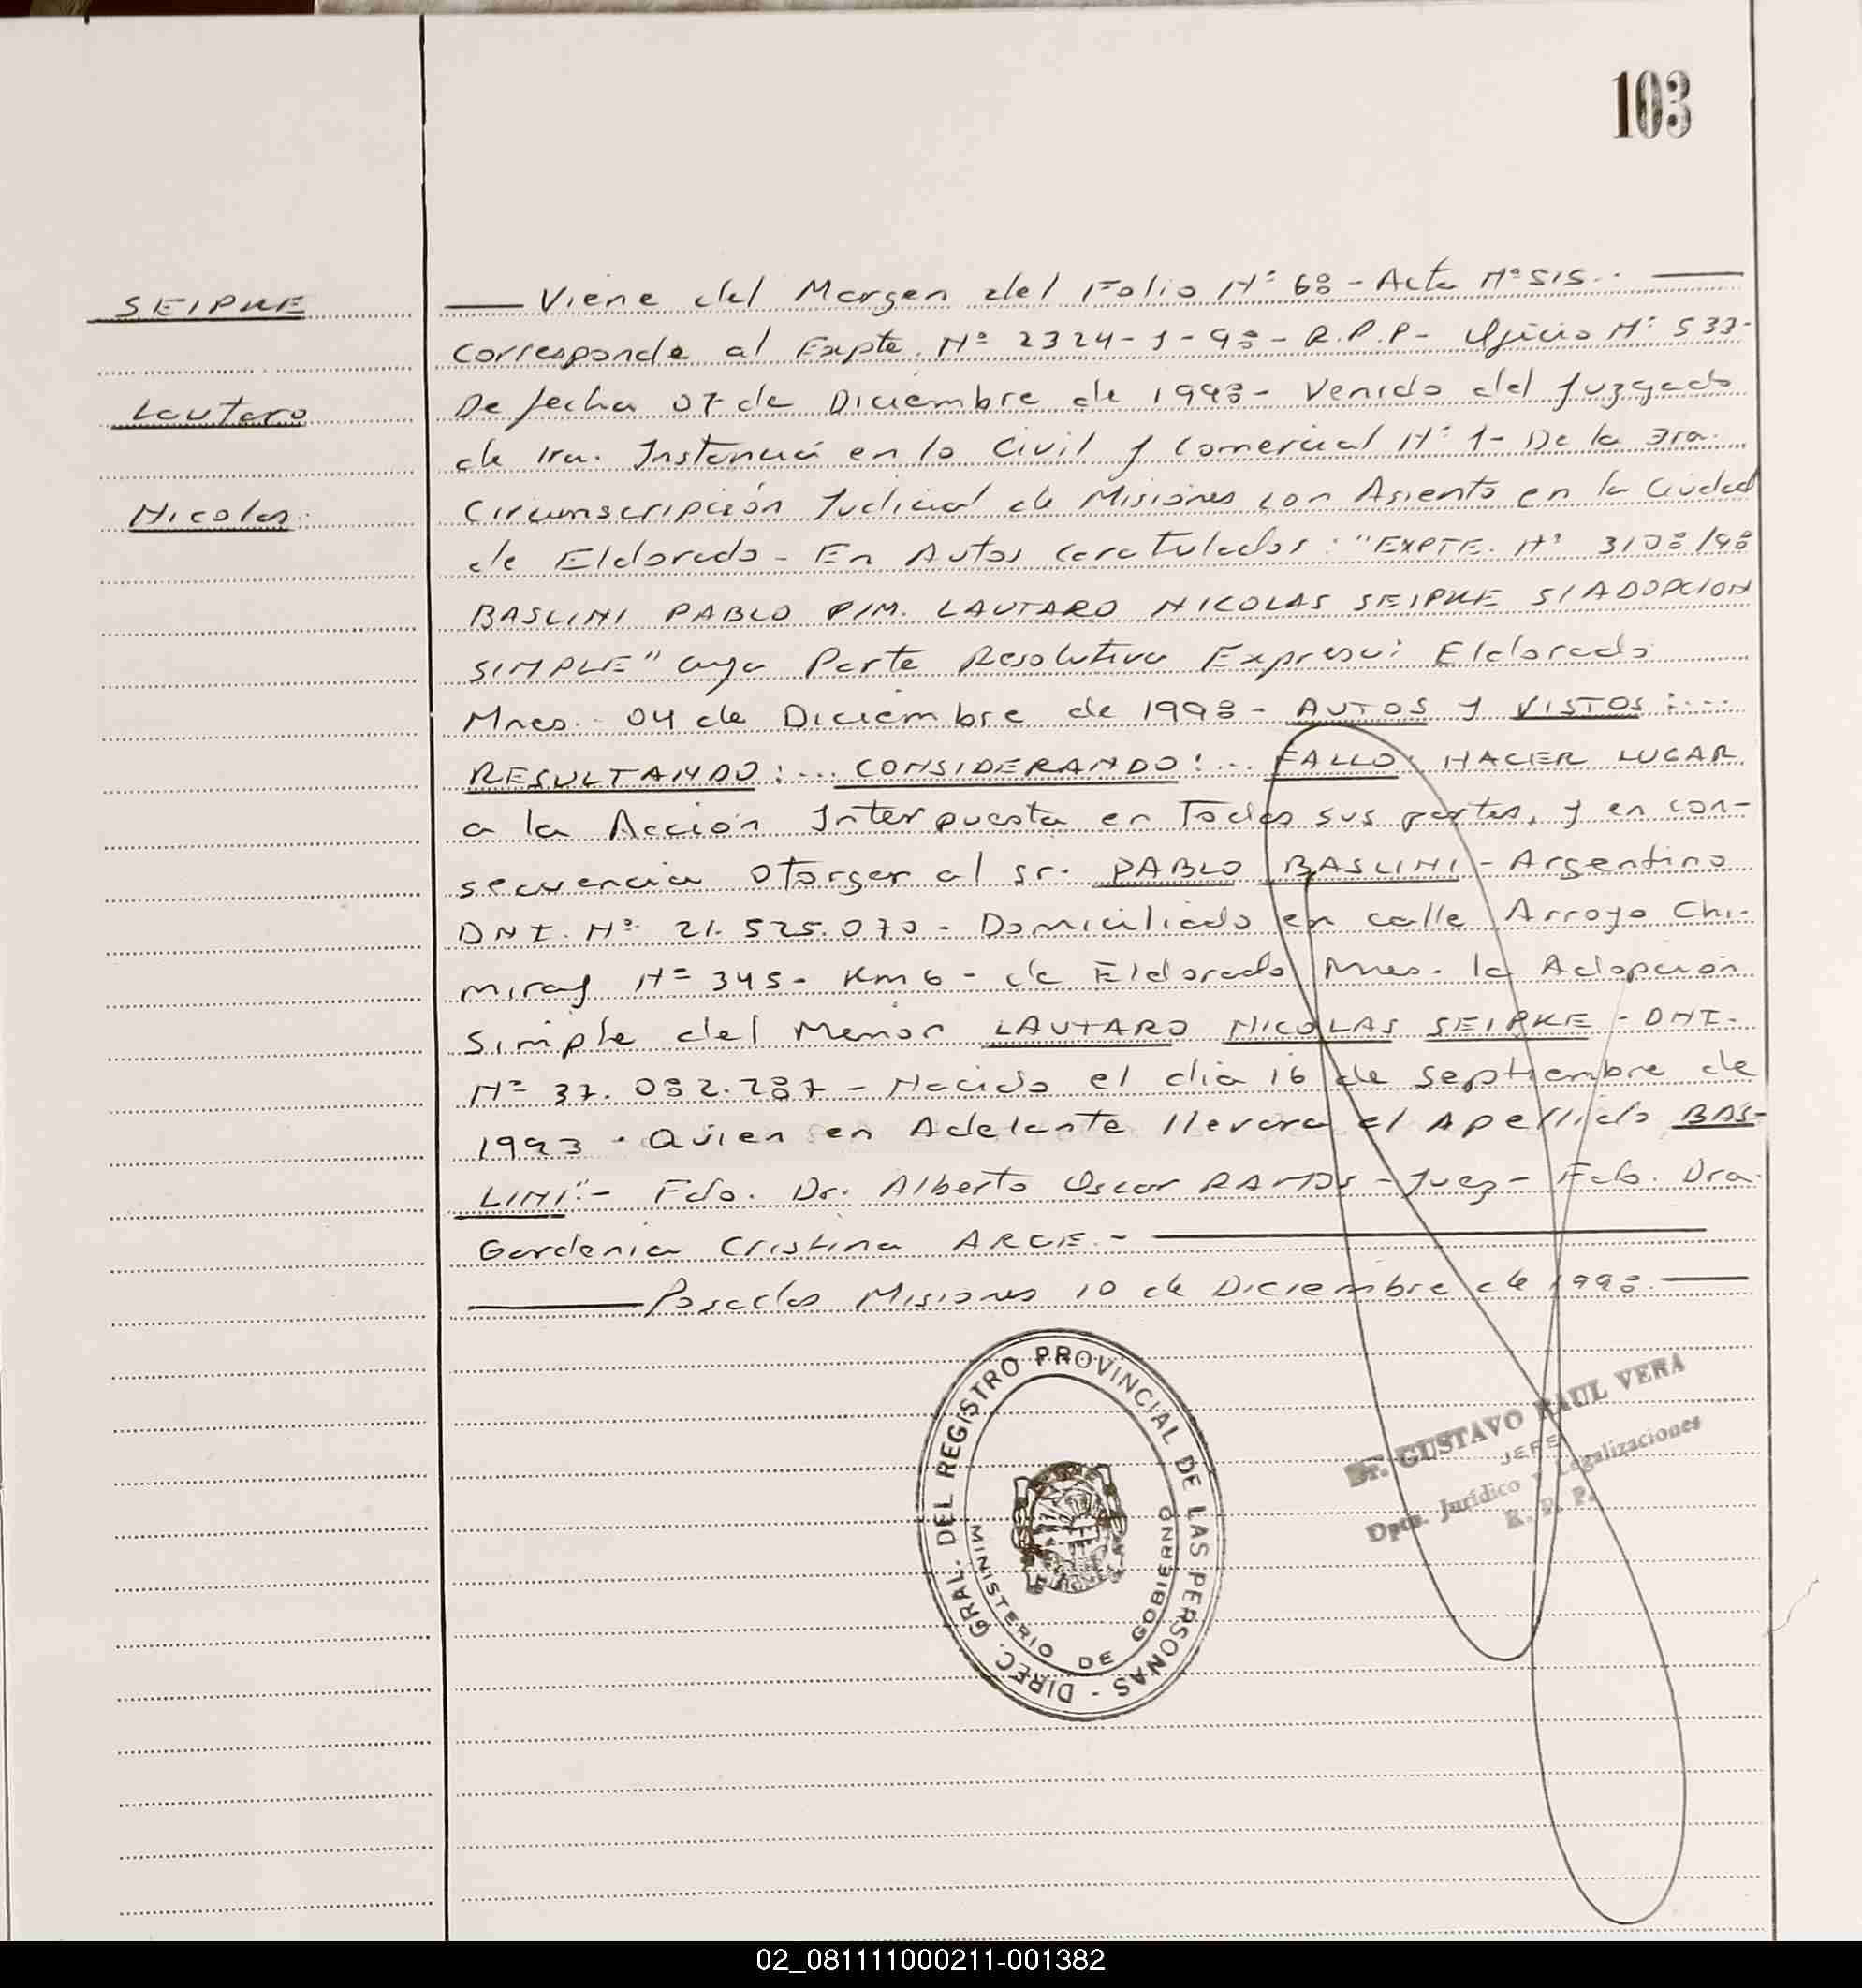 103
SEIPKE
Lautaro
Nicolas.
Viene del Margen del Folio Nº 68 - Acta Nº 515..
Corresponde al Expte. Nº 2324-J-98- R.P.P- Oficio Nº 533-
De fecha 07 de Diciembre de 1998- Venido del Juzgado
de 1ra. Instancia en lo Civil y Comercial Nº 1- De la 3ra.
Circunscripción Judicial de Misiones con Asiento en la Ciudad
de Eldorado - En Autos Caratulados: "EXPTE. Nº 3108/98
BASLINI PABLO P/M. LAUTARO NICOLAS SEIPKE S/ADOPCION
SIMPLE" cuya Parte Resolutiva Expresa: Eldorado
Mnes.- 04 de Diciembre de 1998- AUTOS Y VISTOS:...
RESULTANDO:... CONSIDERANDO:... FALLO HACER LUGAR
a la Acción Interpuesta en Todas sus partes, y en con-
secuencia Otorgar al Sr. PABLO BASLINI - Argentino
DNI. Nº 21.525.070 - Domiciliado en calle Arroyo Chi-
miray Nº 345- Km 6 - de Eldorado Mnes. la Adopción
Simple del Menor LAUTARO NICOLAS SEIPKE - DNI-
Nº 37.082.287 - Nacido el dia 16 de septiembre de
1993 - Quien en Adelante llevara el Apellido BAS-
LINI".- Fdo. Dr. Alberto Oscar RAMOS - Juez - Fdo. Dra.
Gardenia Cristina ARCE.-
Posadas Misiones 10 de Diciembre de 1998.-
DIREC. GRAL. DEL REGISTRO PROVINCIAL DE LAS PERSONAS -
MINISTERIO DE GOBIERNO
Dr. GUSTAVO RAUL VERA
JEFE
Dpto. Jurídico y Legalizaciones
R. P. P.
02_081111000211-001382